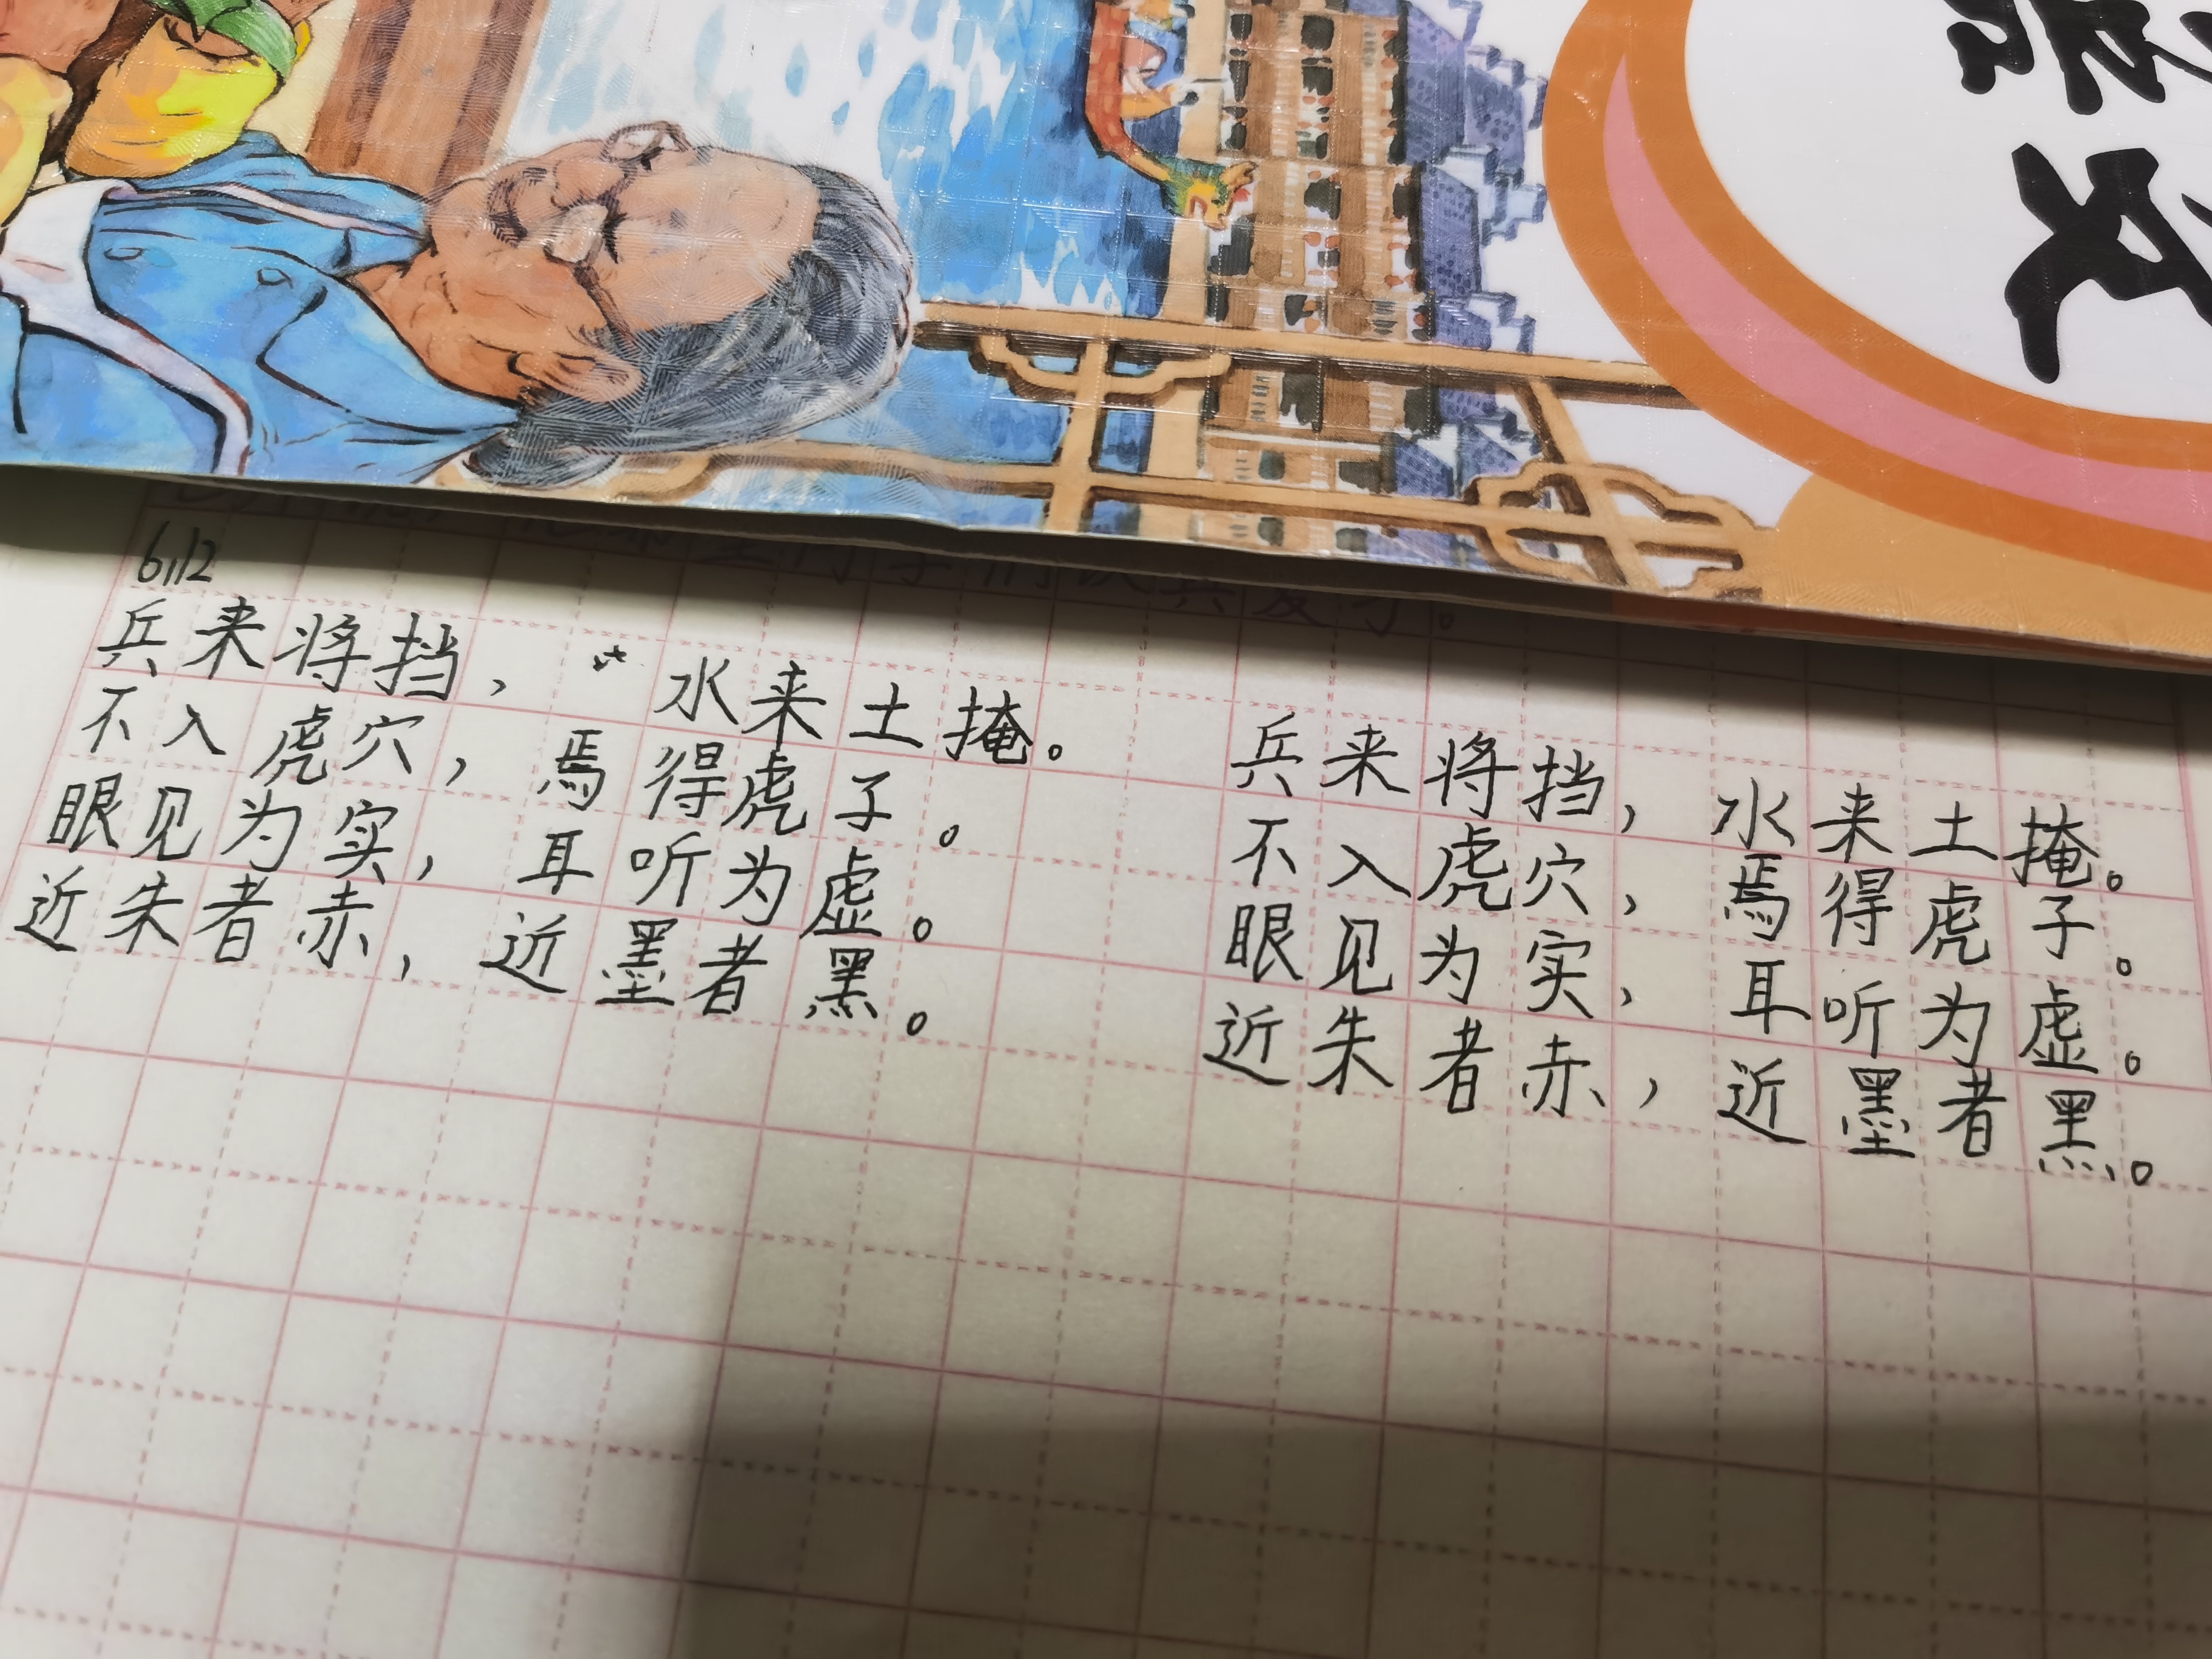 6.12
兵来将挡，水来土掩。
不入虎穴，焉得虎子。
眼见为实，耳听为虚。
近朱者赤，近墨者黑。
兵来将挡，水来土掩。
不入虎穴，焉得虎子。
眼见为实，耳听为虚。
近朱者赤，近墨者黑。